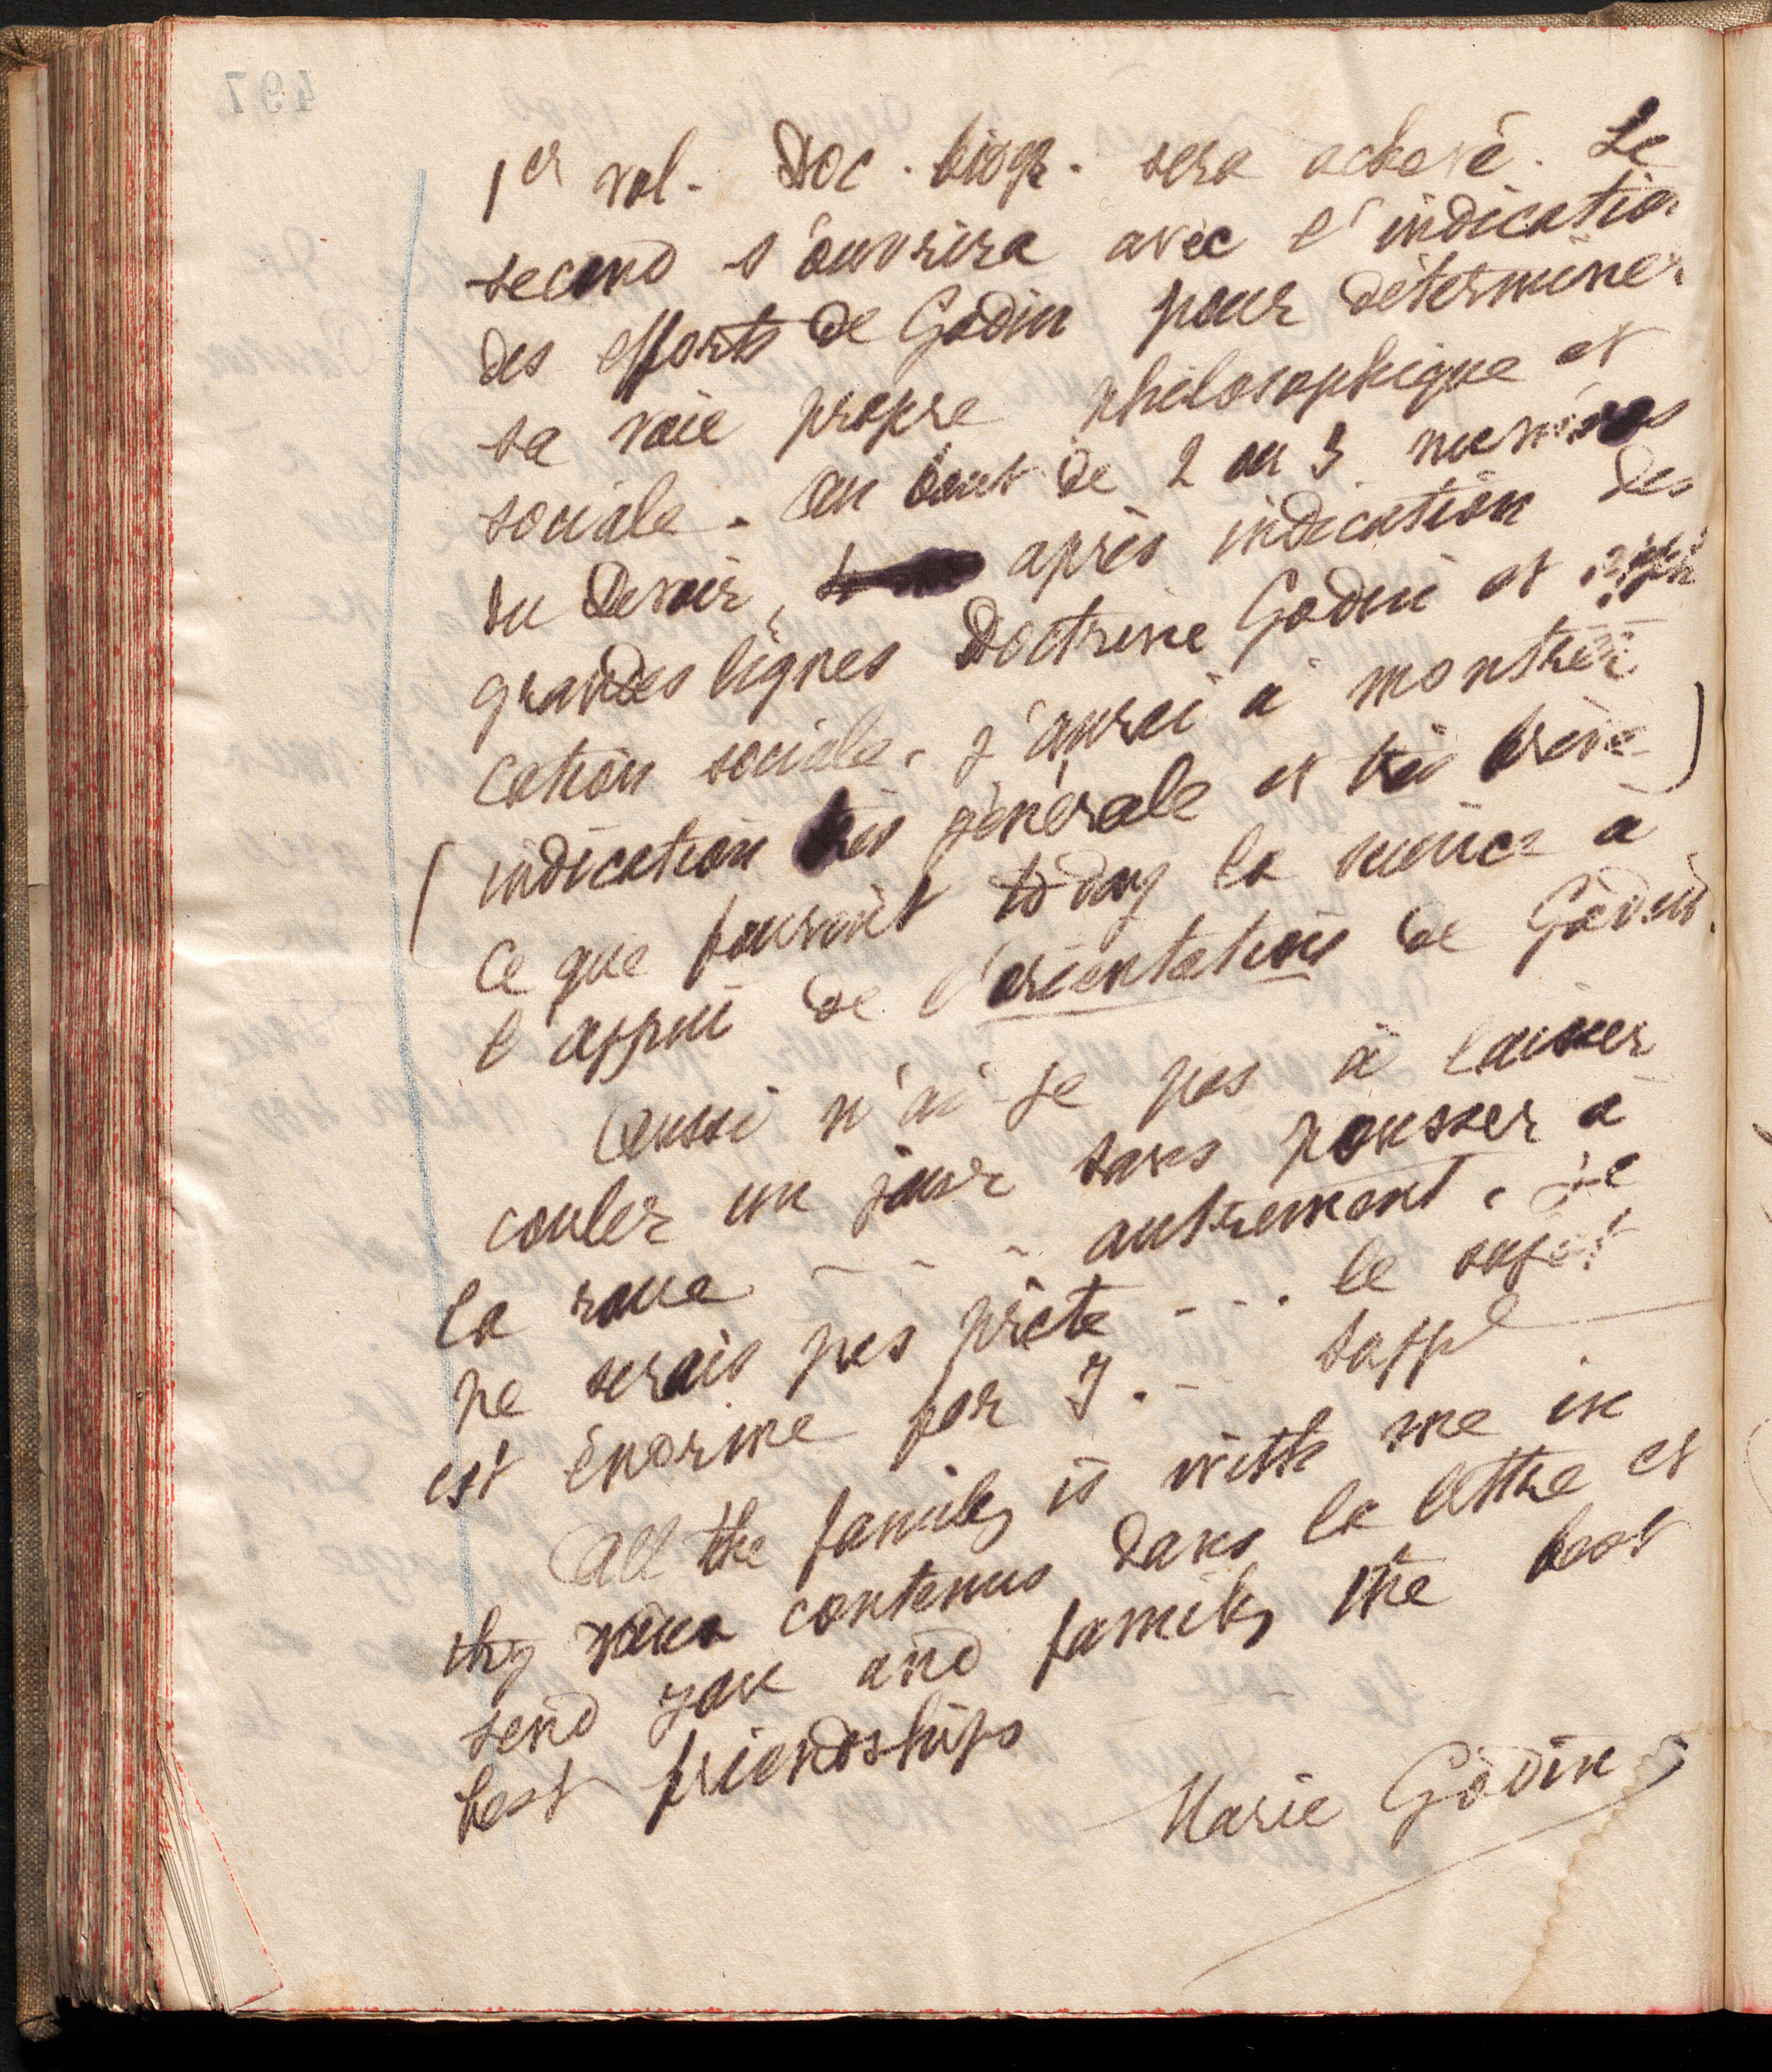 1er vol. Doc. biogr. sera achevé. Le
second s'ouvrira avec l'indication
des efforts de Godin pour déterminer
sa voie propre philosophique et
sociale. Au bout de 2 ou 3 numéros
du Devoir, après indication des
grandes lignes Doctrine Godin et
cation sociale, j'aurai à montrer
(indication très générale et très brève)
ce que fournit to day la science à
l'appui de l'orientation de Godin.
Aussi n'ai-je pas à laisser
couler un jour sans pousser à
la roue - - - - autrement, je
ne serais pas prête - - . le sujet
est énorme for I. -
All the family is with me in
thy vœux contenus dans la lettre et
send you and family the best
best friendships
Marie Godin
497